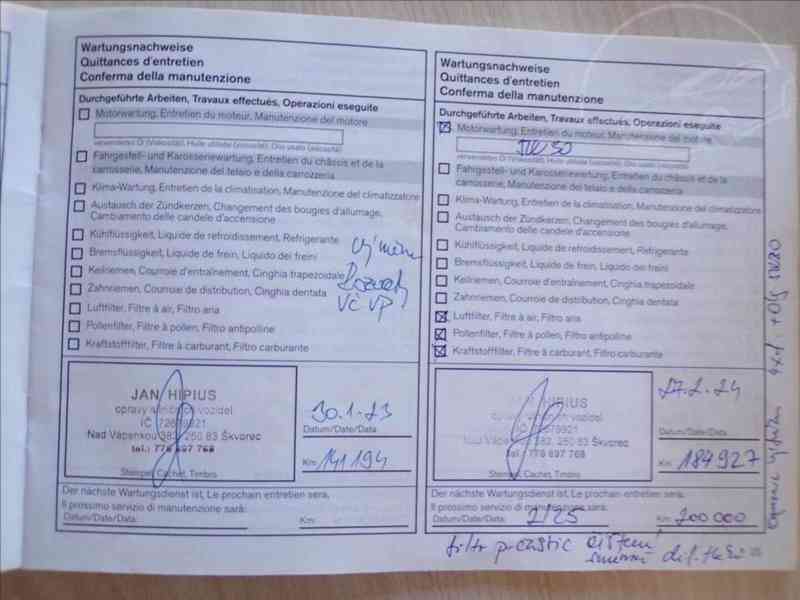 Wartungsnachweise
Quittances d'entretien
Conferma della manutenzione
Durchgeführte Arbeiten, Travaux effectués, Operazioni eseguite
Motorwartung, Entretien du moteur, Manutenzione del motore
verwendetes Öl (Viskosität), Huile utilisée (viscosité), Olio usato (viscosità)
Fahrgestell- und Karosseriewartung, Entretien du châssis et de la
carrosserie, Manutenzione del telaio e della carrozzeria
Klima-Wartung, Entretien de la climatisation, Manutenzione del climatizzatore
Austausch der Zündkerzen, Changement des bougies d'allumage,
Cambiamento delle candele d'accensione
Kühlflüssigkeit, Liquide de refroidissement, Refrigerante
Bremsflüssigkeit, Liquide de frein, Liquido dei freini
Keilriemen, Courroie d'entraînement, Cinghia trapezoidale
Zahnriemen, Courroie de distribution, Cinghia dentata
Luftfilter, Filtre à air, Filtro aria
Pollenfilter, Filtre à pollen, Filtro antipolline
Kraftstofffilter, Filtre à carburant, Filtro carburante
Rozvody
vč VP
JAN HIPIUS
opravy silničních vozidel
Nad Vápenkou 382, 250 83 Škvorec
Stempel, Cachet, Timbro
30.1.23
Datum/Date/Data
Km 141194
Der nächste Wartungsdienst ist, Le prochain entretien sera,
Il prossimo servizio di manutenzione sarà:
Datum/Date/Data: Km:
Wartungsnachweise
Quittances d'entretien
Conferma della manutenzione
Durchgeführte Arbeiten, Travaux effectués, Operazioni eseguite
Motorwartung, Entretien du moteur, Manutenzione del motore
verwendetes Öl (Viskosität), Huile utilisée (viscosité), Olio usato (viscosità)
Fahrgestell- und Karosseriewartung, Entretien du châssis et de la
carrosserie, Manutenzione del telaio e della carrozzeria
Klima-Wartung, Entretien de la climatisation, Manutenzione del climatizzatore
Austausch der Zündkerzen, Changement des bougies d'allumage,
Cambiamento delle candele d'accensione
Kühlflüssigkeit, Liquide de refroidissement, Refrigerante
Bremsflüssigkeit, Liquide de frein, Liquido dei freini
Keilriemen, Courroie d'entraînement, Cinghia trapezoidale
Zahnriemen, Courroie de distribution, Cinghia dentata
Luftfilter, Filtre à air, Filtro aria
Pollenfilter, Filtre à pollen, Filtro antipolline
Kraftstofffilter, Filtre à carburant, Filtro carburante
JAN HIPIUS
opravy silničních vozidel
Nad Vápenkou 382, 250 83 Škvorec
Stempel, Cachet, Timbro
27.2.24
Datum/Date/Data
Km 184927
Der nächste Wartungsdienst ist, Le prochain entretien sera,
Il prossimo servizio di manutenzione sarà:
Datum/Date/Data: 2/25 Km: 200 000
filtr pevstic čištění